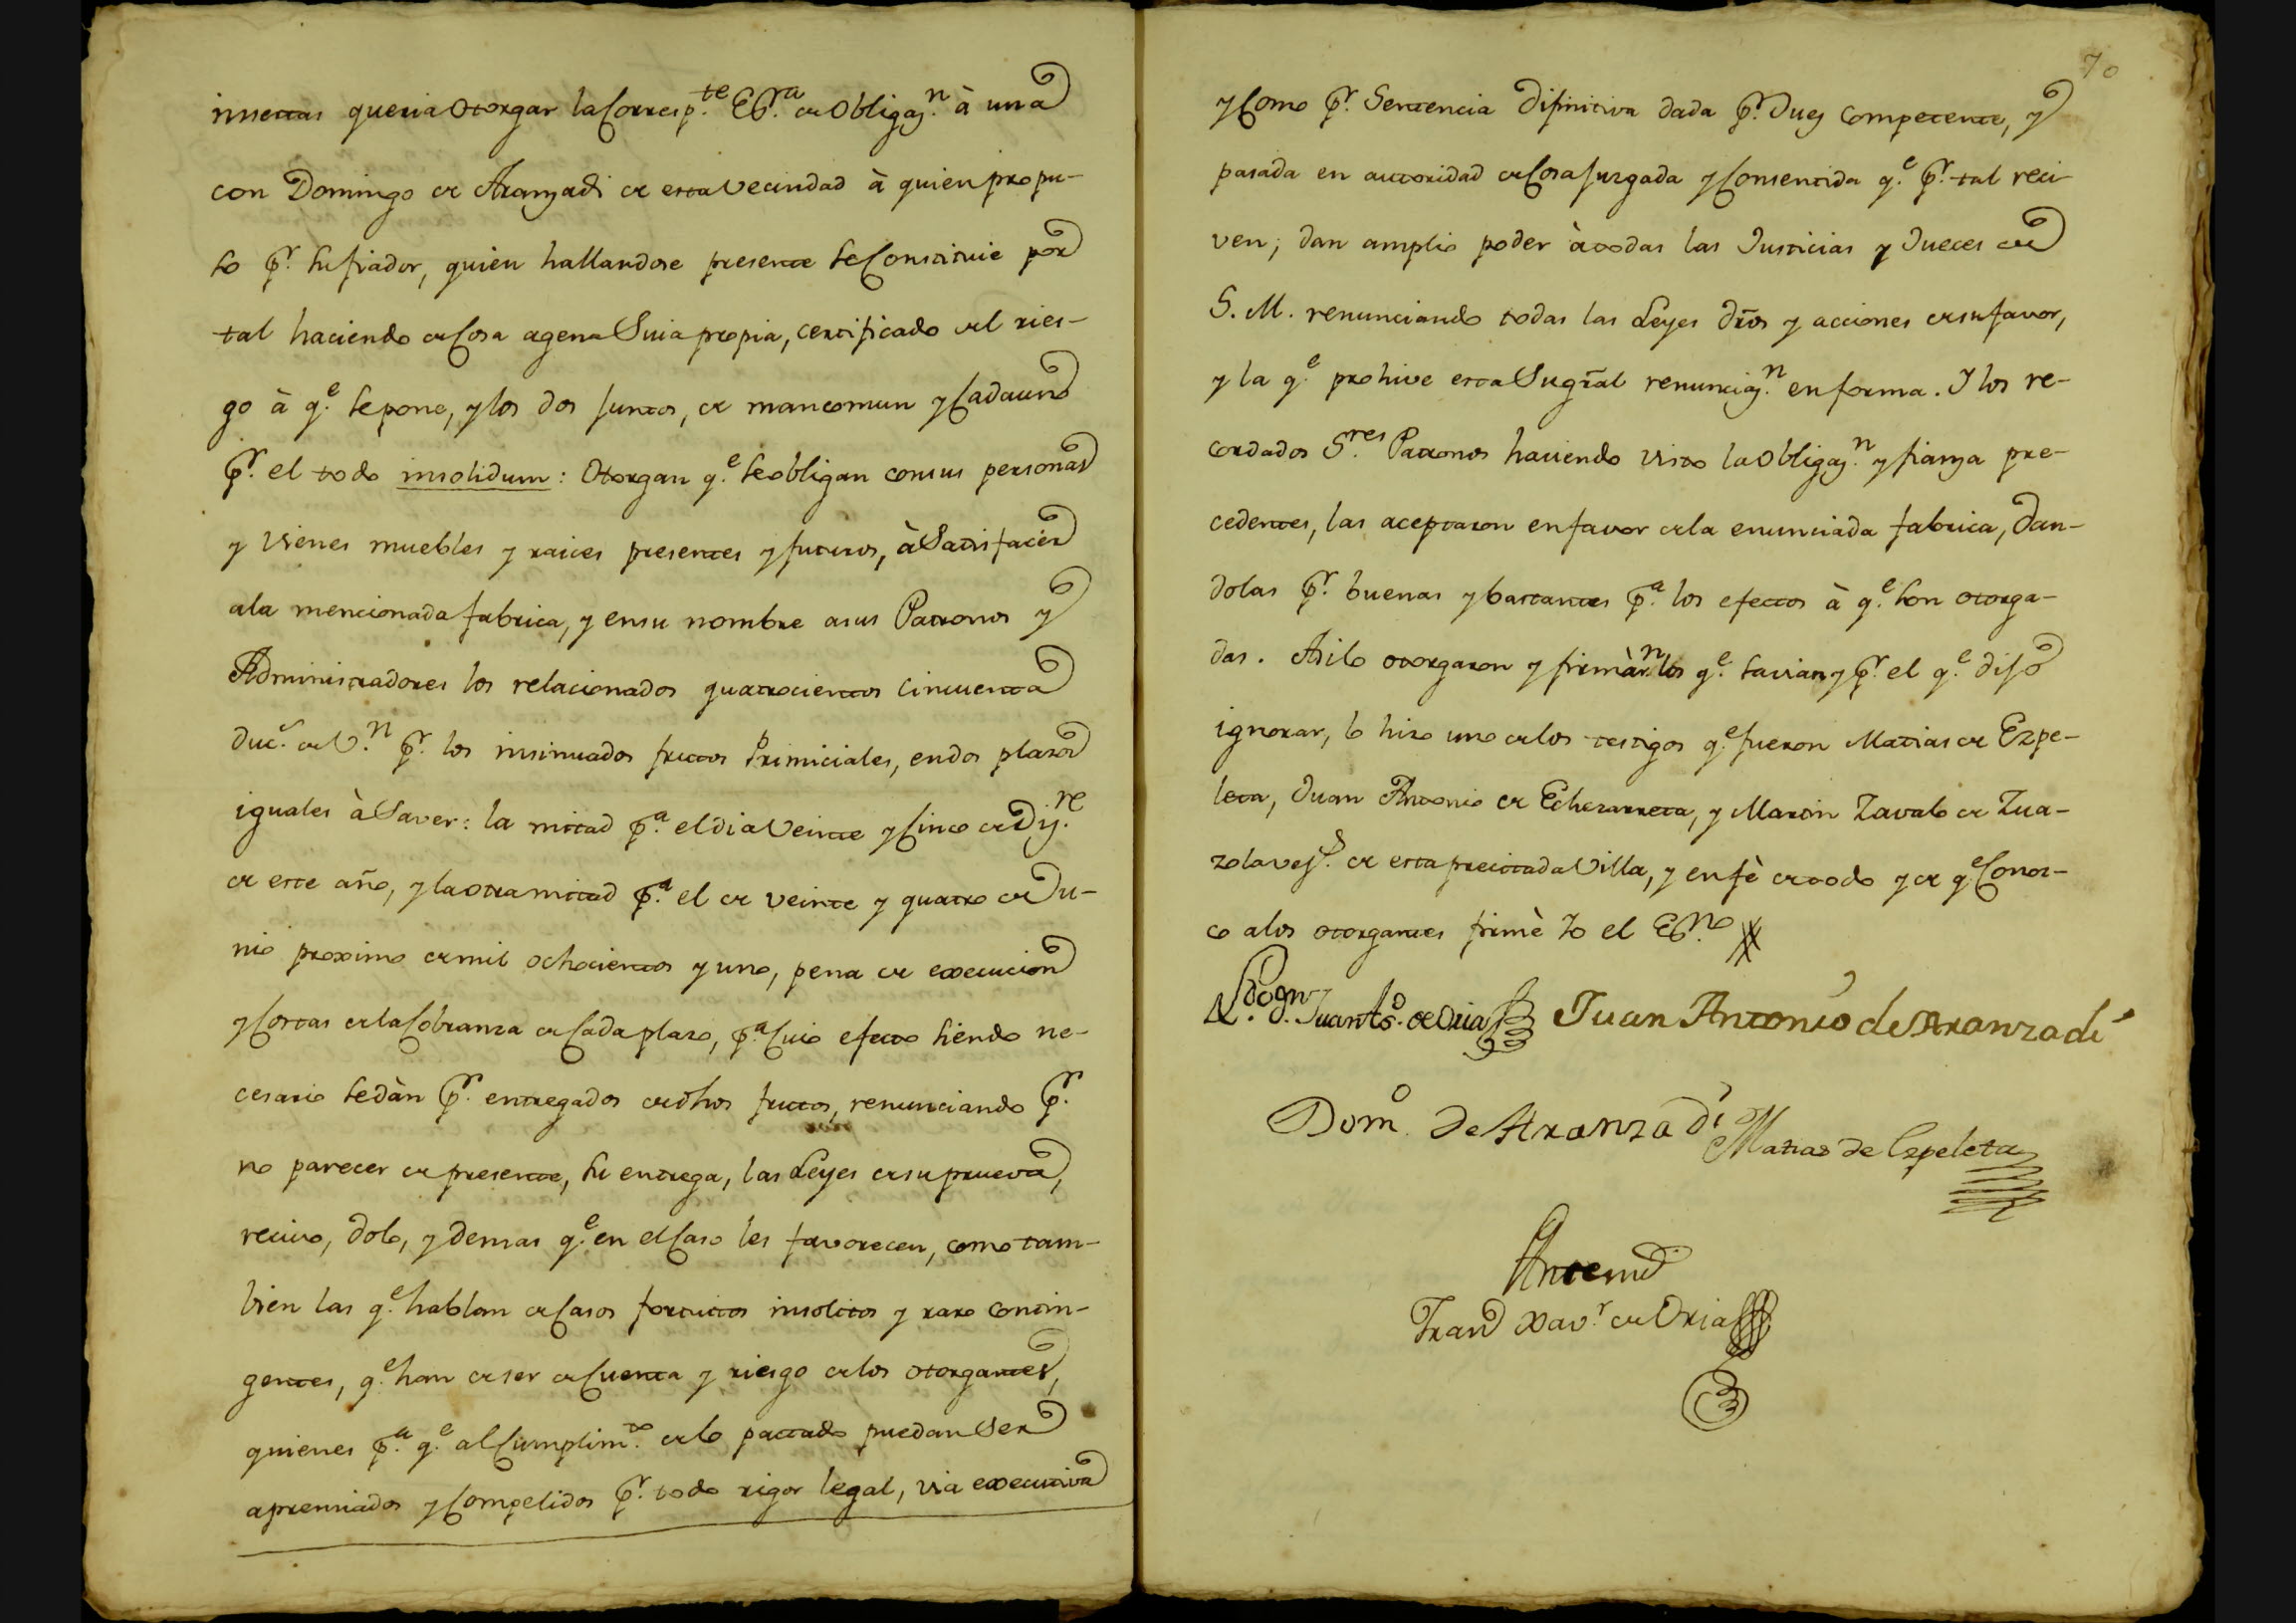 insertas queria Otorgar la Corresp.te Es.ra de Obligaz.n à una
con Domingo de Aranzadi de esta Vecindad à quien propu-
so p.r su fiador, quien hallandose presente se Constituie por
tal haciendo de Cosa agena Suia propia, certificado del ries-
go à q.e se pone, y los dos Juntos, de mancomun y Cada uno
p.r el todo insolidum: Otorgan q.e se obligan con sus personas
y Vienes muebles y raices presentes y futuros, à Satisfacer
a la mencionada fabrica, y en su nombre a sus Patronos y
Administradores los relacionados quatrocientos Cincuenta
duc.s de V.n p.r los insinuados frutos Primiciales, en dos plazos
iguales à Saver: la mitad p.a el dia Veinte y Cinco de Diz.re
de este año, y la otra mitad p.a el de Veinte y quatro de Ju-
nio proximo de mil ochocientos y uno, pena de execucion
y Costas de la Cobranza de Cada plazo, p.a Cuio efecto siendo ne-
cesario se dàn p.r entregados de dhos frutos, renunciando p.r
no parecer de presente, su entrega, las Leyes de su prueva,
recivo, dolo, y demas q.e en el Caso les favorecen, como tam-
bien las q.e hablan de Casos fortuitos insolitos y raro contin-
gentes, q.e han de ser de Cuenta y riesgo de los otorgantes,
quienes p.a q.e al Cumplim.to de lo pactado puedan Ser
apremiados y Compelidos p.r todo rigor legal, via executiva
70
y Como p.r Sentencia Difinitiva dada p.r Juez Competente, y
pasada en autoridad de Cosa Juzgada y Consentida q.e p.r tal reci-
ven; dan amplio poder à todas las Justicias y Jueces de
S. M. renunciando todas las Leyes dros y acciones de su favor,
y la q.e prohive esta Su gral renunciaz.n en forma. Y los re-
cordados S.res Patronos haviendo visto la Obligaz.n y fianza pre-
cedentes, las aceptaron en favor de la enunciada fabrica, Dan-
dolas p.r buenas y bastantes p.a los efectos à q.e son otorga-
das. Asi lo otorgaron y firmàr.n los q.e savian y p.r el q.e dijo
ignorar, lo hizo uno de los testigos q.e fueron Matias de Ezpe-
leta, Juan Antonio de Echezarreta, y Martin Zavalo de Zua-
zola vez.s de esta precitada Villa, y en fè de todo y de q.e Conoz-
co a los otorgantes firmè Yo el Es.no
D.n Juan Ant.o de Oria Juan Antonio de Aranzadi
Dom.o de Aranzadi
Matias de Ezpeleta
Ante mi
Fran.co Xav.r de Oria